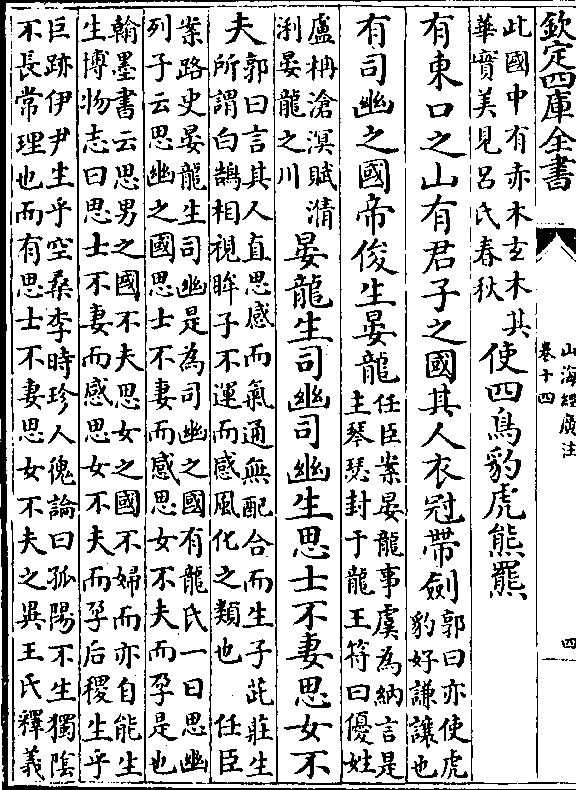 欽定四庫全書
山海經廣注
卷十四
四
此國中有赤木玄木其
華實美見呂氏春秋
使四鳥豹虎熊羆
有東口之山有君子之國其人衣冠帶劍
郭曰亦使虎
豹好謙讓也
有司幽之國帝俊生晏龍
任臣案晏龍事虞為納言是
主琴瑟封于龍王符曰優姓
盧柟滄溟賦㵎
浰晏龍之川
晏龍生司幽司幽生思士不妻思女不
夫
郭曰言其人直思感而氣通無配合而生子此莊生
所謂白鵠相視眸子不運而感風化之類也 任臣
案路史晏龍生司幽是為司幽之國有龍氏一曰思幽
列子云思幽之國思士不妻而感思女不夫而孕是也
翰墨書云思男之國不夫思女之國不婦而亦自能生
生博物志曰思士不妻而感思女不夫而孕后稷生乎
巨跡伊尹生乎空桑李時珍人傀論曰孤陽不生獨陰
不長常理也而有思士不妻思女不夫之異王氏釋義